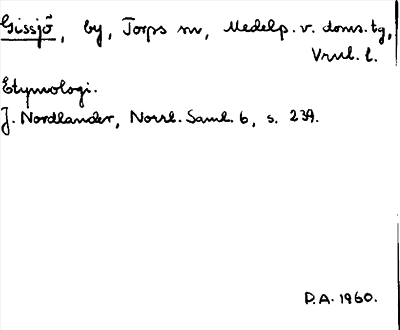 Gissjö, by, Torps sn, Medelp. v. doms. tg,
Vrnl. l.
Etymologi.
J. Nordlander, Norrl. Saml. 6, s. 239.
P.A. 1960.